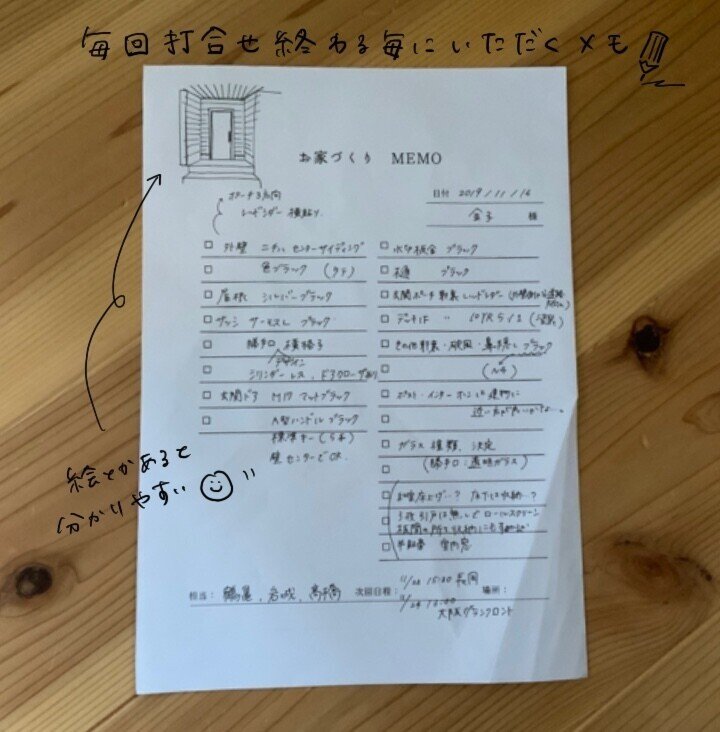 毎回打合せ終わる毎にいただくメモ
お家づくり MEMO
日付 2019/11/16
金子 様
ポーチ3方向
レッドシダー 横貼り
外壁 ニチハ センターサイディング
色ブラック (タテ)
屋根 シルバーブラック
サッシ サーモスL ブラック
勝手口 横格子
デザイン
シリンダーレス、ドアクローザあり
玄関ドア M17 マットブラック
A型ハンドル ブラック
標準キー(5本)
壁センターでOK
水切板金 ブラック
樋 ブラック
玄関ポーチ 軒裏 レッドシダー
デッキ
その他軒裏・破風・鼻隠し ブラック
ポスト・インターホンは建物に
ガラス種類 決定
(勝手口:透明ガラス)
お昼寝 床下は収納…?
3枚引戸は無しで ロールスクリーン
室内窓
絵とかあると
分かりやすい
担当: 鶴屋、岩咲、髙橋 次回日程: 11/22 15:30 長岡 場所:
11/24 13:00
大阪グランフロント